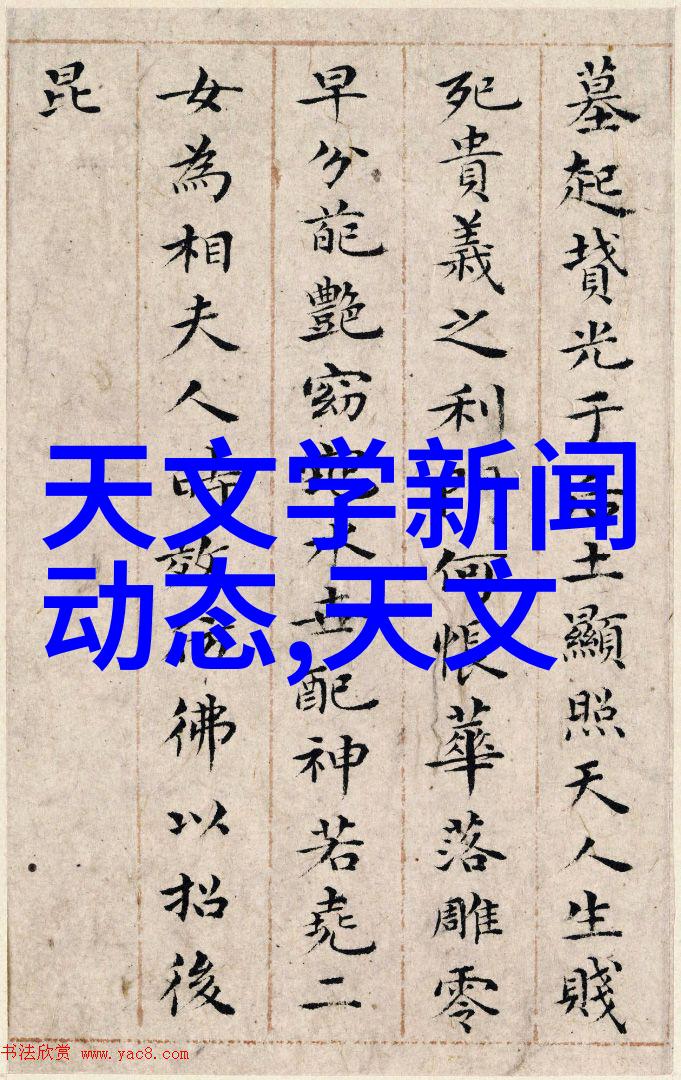 墓起墳光于后土顯照天人生賤
死貴義之利何悵華落雕零
早分葩艷窈永世配神若堯二
女為相夫人時效彷彿以招後
昆
天文学新闻
动态,天文
书法欣赏 www.yac8.com